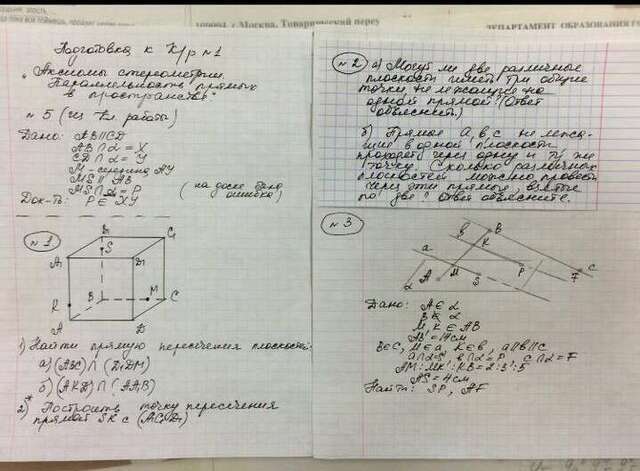 г. Москва, Товарищеский пере
ДЕПАРТАМЕНТ ОБРАЗОВАНИЯ
Подготовка к К/р №1
"Аксиомы стереометрии.
Параллельность прямых
в пространстве"
№5 (из Кл. работы)
Дано: AB∥CD
AB∩α = X
CD∩α = Y
M - середина AY
MS ∥ AB
MS∩α = P
(на доске была
ошибка)
Док-ть: P∈XY
№1
B₁ C₁
S
A₁ D₁
K B M C
A D
1) Найти прямую пересечения плоскостей:
а) (ABC)∩(D₁DM)
б) (AKD)∩(AA₁B)
2)* Построить точку пересечения
прямой SK с (AC₁D₁)
№2 а) Могут ли две различные
плоскости иметь три общие
точки, не лежащие на
одной прямой? (Ответ
объясните).
б) Прямые a, b, c не лежа-
щие в одной плоскости
проходят через одну и ту же
точку. Сколько различных
плоскостей можно провести
через эти прямые, взятые
по две? Ответ объясните.
№3
b B
a K
α A M S P F c
Дано: A∈α
B∉α
M, K ∈ AB
AB = 14см
B∈c, M∈a, K∈b, a∥b∥c
a∩α=S, b∩α=P, c∩α=F
AM:MK:KB = 2:3:5
AS = 4см
Найти: SP, AF